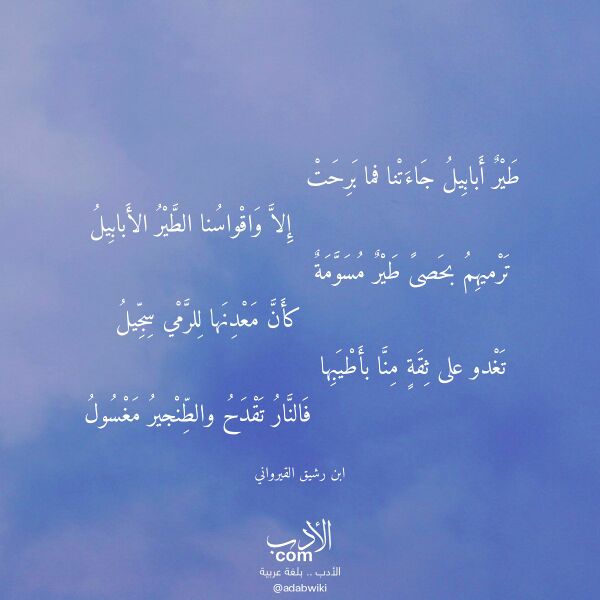 طَيْرٌ أَبابِيلُ جَاءَتْنا فما بَرِحَتْ
إِلاَّ وَاقْواسُنا الطَّيْرُ الأَبابِيلُ
تَرْميهِمُ بحَصىً طَيْرٌ مُسَوَّمَةٌ
كأَنَّ مَعْدِنَها لِلرَّمْي سِجِّيلُ
تَغْدو على ثِقَةٍ مِنَّا بأَطْيَبِها
فَالنَّارُ تَقْدَحُ والطِّنْجيرُ مَغْسُولُ
ابن رشيق القيرواني
الأدب
com
الأدب .. بلغة عربية
@adabwiki